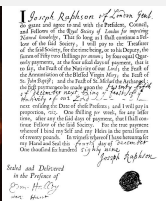 I Joseph Raphson of London Gent.
do grant and agree to and with the President, Council,
and Fellows of the Royal Society of London for improving
Natural Knowledge, That so long as I shall continue a Fel-
low of the said Society, I will pay to the Treasurer
of the said Society, for the time being, or to his Deputy, the
summ of Fifty two shillings per annum, by four equal Quar-
terly payments, at the four usual days of payment, that is
to say, the Feast of the Nativity of our Lord, the Feast of
the Annunciation of the Blessed Virgin Mary, the Feast of
St. John Baptist, and the Feast of St. Michael the Archangel:
the first payment to be made upon the
next ensuing the Date of these Presents; and I will pay in
proportion, viz. One shilling per week, for any lesser
time, after any the said days of payment, that I shall con-
tinue Fellow of the said Society. For the true payment
whereof I bind my Self and my Heirs in the penal summ
of twenty pounds. In witness whereof I have hereunto set
my Hand and Seal this day of December
One thousand six hundred
Joseph Raphson
Sealed and Delivered
in the Presence of